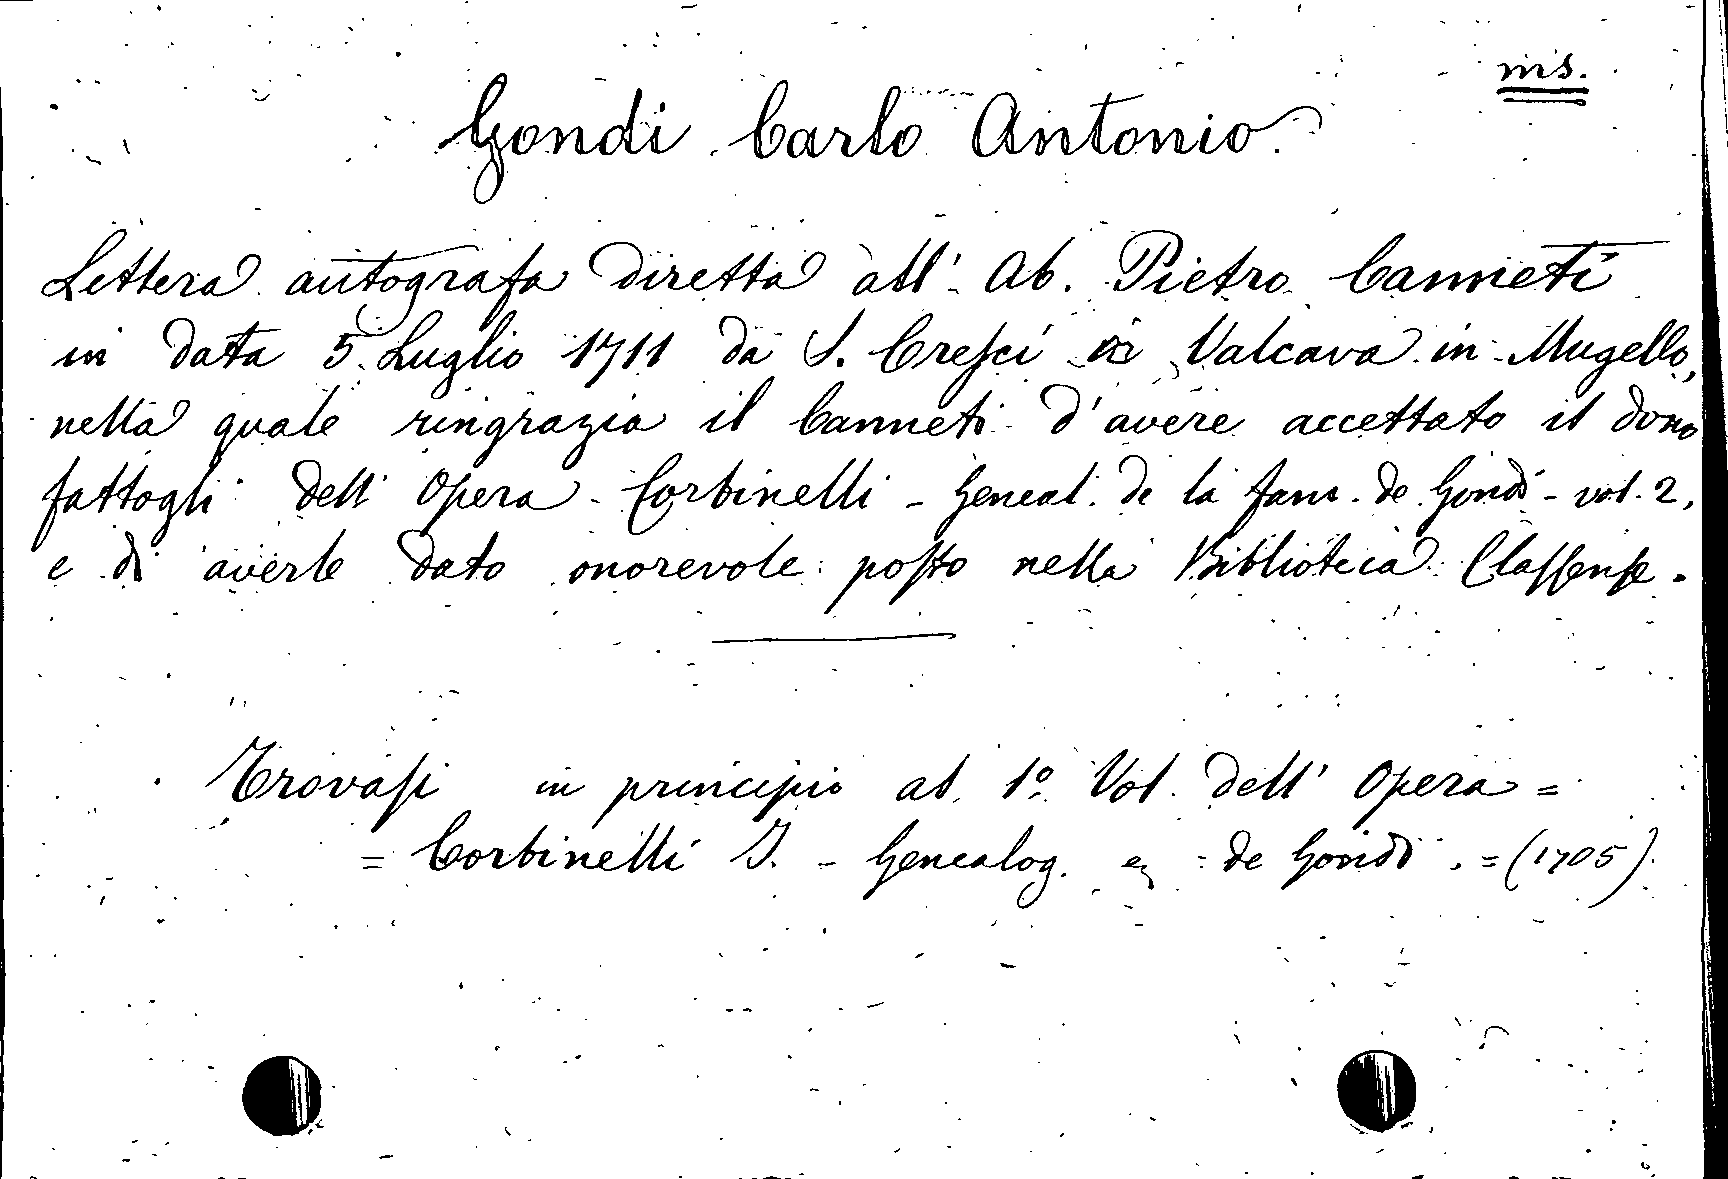 ms.
Gondi Carlo Antonio.
Lettera autografa diretta all' Ab. Pietro Canneti
in data 5 Luglio 1711 da S. Cresci di Valcava in Mugello,
nella quale ringrazia il Canneti d'avere accettato il dono
fattogli dell' Opera - Corbinelli - Geneal. de la fam. de Gondi - vol. 2,
e di averle dato onorevole posto nella Biblioteca Classense.
Trovasi in principio al 1º Vol. dell' Opera =
= Corbinelli J. - Genealog. de Gondi . = (1705).